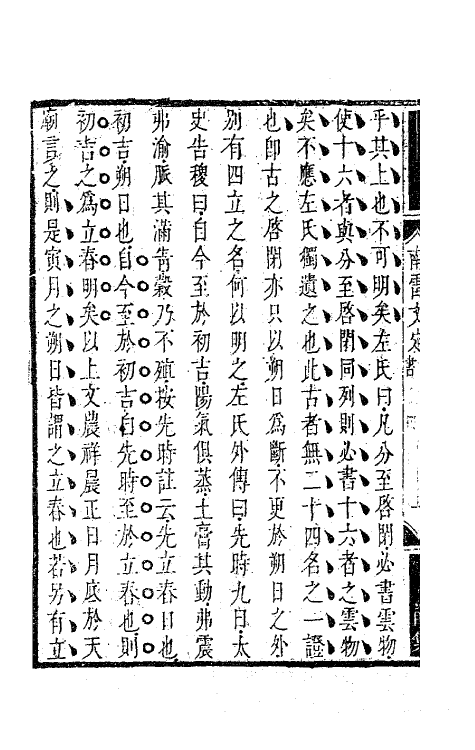 乎其上也不可明矣左氏曰凡分至啓閉必書雲物
使十六者與分至啓閉同列則必書十六者之雲物
矣不應左氏獨遺之也此古者無二十四名之一證
也卽古之啓閉亦只以朔日爲斷不更於朔日之外
別有四立之名何以明之左氏外傳曰先時九日太
史告稷曰自今至於初吉陽氣俱蒸土膏其動弗震
弗渝脈其滿眚穀乃不殖按先時註云先立春日也
初吉朔日也自今至於初吉自先時至於立春也則
初吉之爲立春明矣以上文農祥晨正日月底於天
廟言之則是寅月之朔日皆謂之立春也若另有立
南雷文定 書